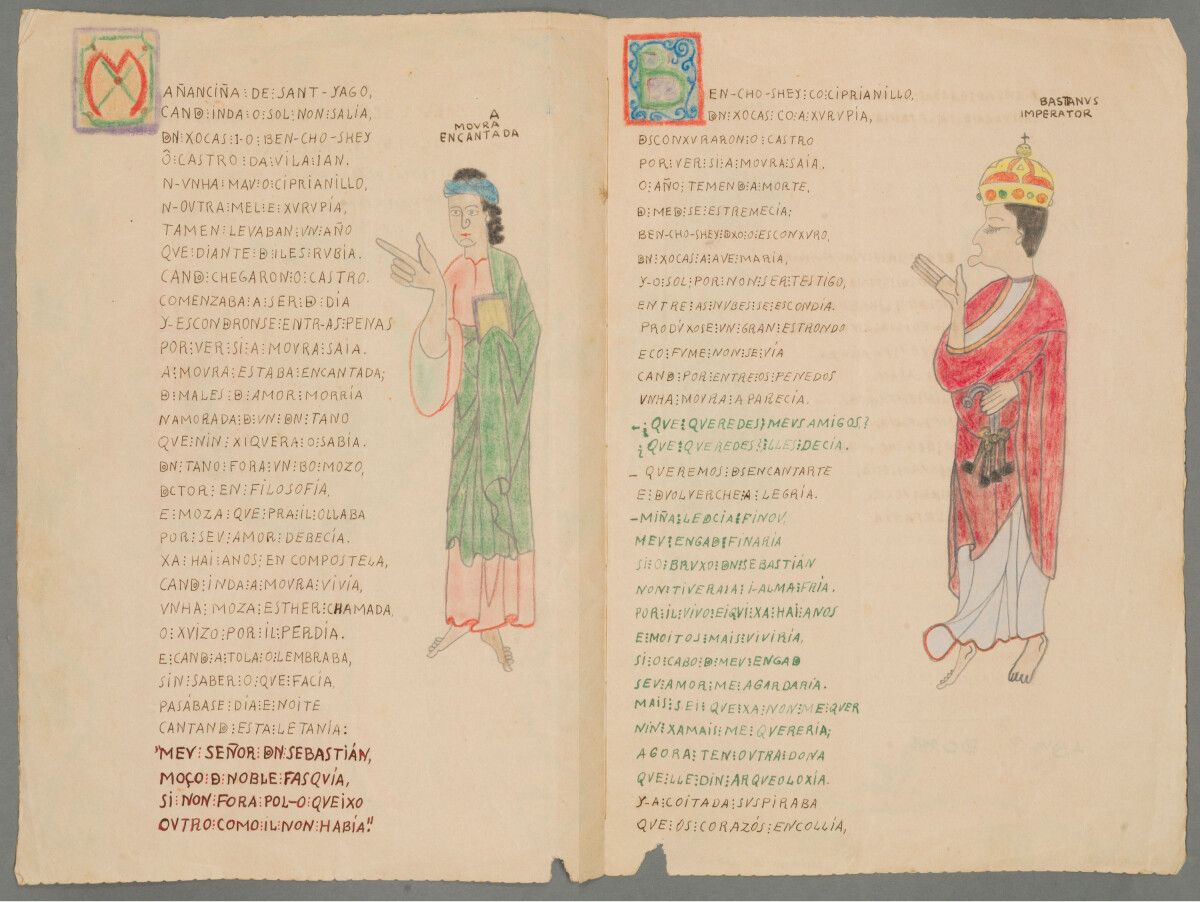 MAÑANCIÑA:DE:SANT-YAGO,
CAND:INDA:O:SOL:NON:SALÍA,
DN:XOCAS:I-O:BEN-CHO-SHEY
Ô:CASTRO:DA:VILA:IAN.
N-VNHA:MAV:O:CIPRIANILLO,
N-OVTRA:MEL:E:XVRVPIA,
TAMEN:LEVABAN:VN:AÑO
QVE:DIANTE:D:ILES:RVBIA.
CAND:CHEGARON:O:CASTRO.
COMENZABA:A:SER:D:DIA
Y-ESCONDRONSE:ENTR-AS:PENAS
POR:VER:SI:A:MOVRA:SAIA.
A:MOVRA:ESTABA:ENCANTADA;
D:MALES:D:AMOR:MORRIA
NAMORADA:D:VN:DN:TANO
QVE:NIN:XIQVERA:O:SABIA.
DN:TANO:FORA:VN:BO:MOZO,
DCTOR:EN:FILOSOFÍA,
E:MOZA:QVE:PRA:IL:OLLABA
POR:SEV:AMOR:DEBECÍA.
XA:HAI:ANOS:EN COMPOSTELA,
CAND:INDA:A:MOVRA:VIVÍA,
VNHA:MOZA:ESTHER:CHAMADA,
O:XVIZO:POR:IL:PERDÍA.
E:CAND:A:TOLA:O:LEMBRABA,
SIN:SABER:O:QVE:FACÍA,
PASÁBASE:DÍA:E:NOITE
CANTAND:ESTA:LETANÍA:
"MEV:SEÑOR:DN:SEBASTIÁN,
MOÇO:D:NOBLE:FASQVÍA,
SI:NON:FORA:POL-O:QVEIXO
OVTRO:COMO:IL:NON:HABÍA."
A
MOVRA
ENCANTADA
BEN-CHO-SHEY:CO:CIPRIANILLO,
DN:XOCAS:CO:A:XVRVPIA,
DSCONXVRARON:O:CASTRO
POR:VER:SI:A:MOVRA:SAIA.
O:AÑO:TEMEND:A:MORTE,
D:MED:SE:ESTREMECÍA;
BEN-CHO-SHEY:DXO:O:ESCONXVRO,
DN:XOCAS:A:AVE:MARÍA,
Y-O:SOL:POR:NON:SER:TESTIGO,
ENTRE:AS:NVBES:SE:ESCONDIA.
PRODÚXOSE:VN:GRAN:ESTRONDO
E:CO:FVME:NON:SE:VÍA
CAND:POR:ENTRE:OS:PENEDOS
VNHA:MOVRA:APARECÍA.
-¿QVE:QVEREDES:MEVS:AMIGOS?
¿QVE:QVEREDES?:LLES:DECÍA.
- QVEREMOS:DSENCANTARTE
E:DVOLVERCHE:A:LEGRÍA.
-MIÑA:LEDCIA:FINOV,
MEV:ENGAD:FINARÍA
SI:O:BRVXO:DN:SEBASTIÁN
NON:TIVERA:A:I-ALMA:FRÍA.
POR:IL:VIVO:EIQVI:XA:HAI:ANOS
E:MOITOS:MAIS:VIVIRÍA,
SI:O:CABO:D:MEV:ENGAD
SEV:AMOR:ME:AGARDARÍA.
MAIS:SEI:QVE:XA:NON:ME:QVER
NIN:XAMAIS:ME:QVERERÍA;
AGORA:TEN:OVTRA:DONA
QVE:LLE:DIN:ARQVEOLOXÍA.
Y-A:COITADA:SVSPIRABA
QVE:OS:CORAZÓS:ENCOLLÍA,
BASTANVS
IMPERATOR